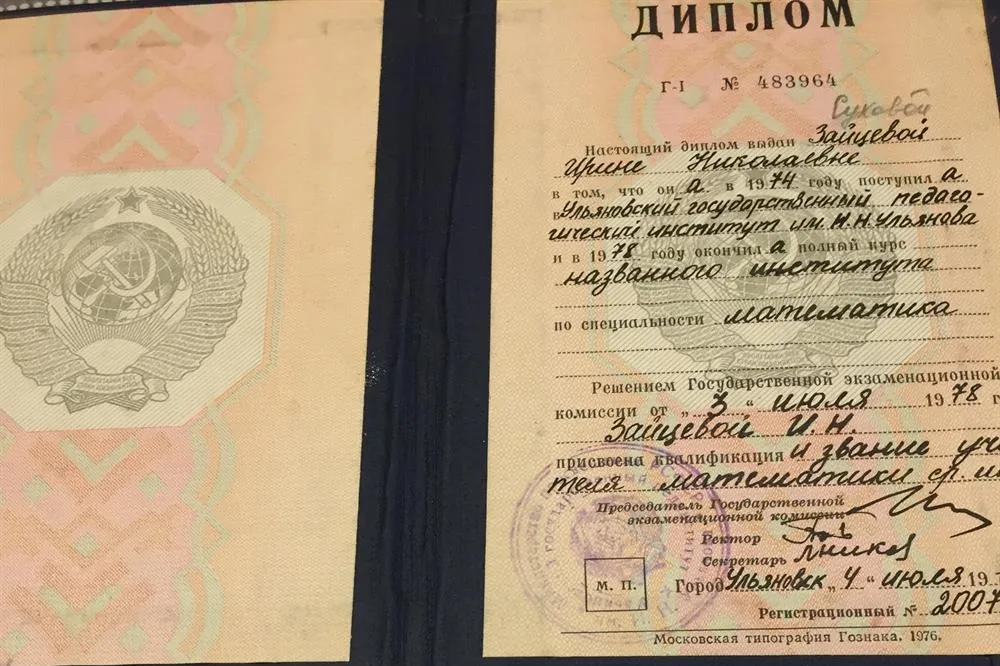 ДИПЛОМ
Г-I № 483964
Суковой
Настоящий диплом выдан Зайцевой
Ирине Николаевне
в том, что он а в 1974 году поступил а
в Ульяновский государственный педаго-
гический институт им. И.Н.Ульянова
и в 1978 году окончил а полный курс
названного института
по специальности математика
Решением Государственной экзаменационной
комиссии от „ 3 “ июля 1978 г
Зайцевой И.Н.
присвоена квалификация и звание учи
теля математики ср.
Председатель Государственной
экзаменационной комиссии
Ректор
Секретарь
М. П.
Город Ульяновск „ 4 “ июля 19
Регистрационный № 2007
Московская типография Гознака. 1976.